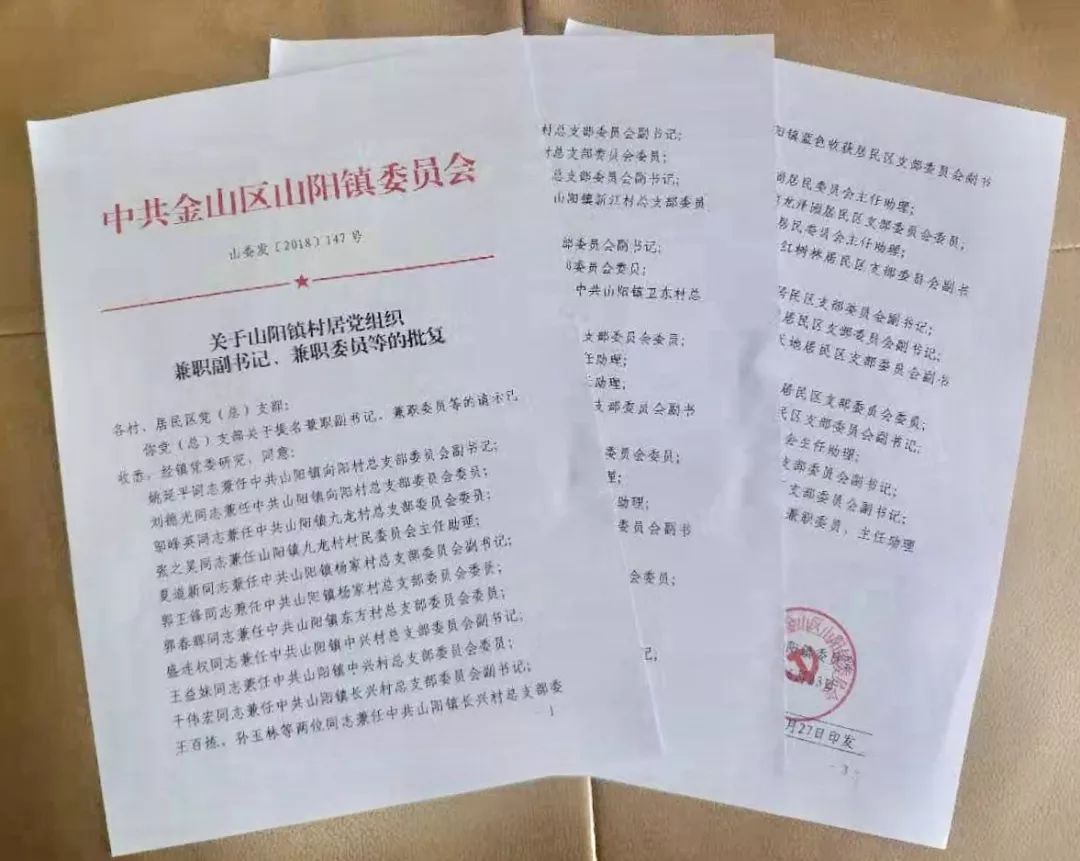 中共金山区山阳镇委员会
山委发〔2018〕147号
关于山阳镇村居党组织
兼职副书记、兼职委员等的批复
各村、居民区党（总）支部：
你党（总）支部关于提名兼职副书记、兼职委员等的请示已
收悉，经镇党委研究，同意：
姚延平同志兼任中共山阳镇向阳村总支部委员会副书记；
刘德光同志兼任中共山阳镇向阳村总支部委员会委员；
邬峰英同志兼任中共山阳镇九龙村总支部委员会委员；
张之昊同志兼任山阳镇九龙村村民委员会主任助理；
夏道新同志兼任中共山阳镇杨家村总支部委员会副书记；
郭王锋同志兼任中共山阳镇杨家村总支部委员会委员；
郭春晖同志兼任中共山阳镇东方村总支部委员会委员；
盛连权同志兼任中共山阳镇中兴村总支部委员会副书记；
王益妹同志兼任中共山阳镇中兴村总支部委员会委员；
干伟宏同志兼任中共山阳镇长兴村总支部委员会副书记；
王百拣、孙玉林等两位同志兼任中共山阳镇长兴村总支部委
- 1
村总支部委员会副书记；
总支部委员会委员；
总支部委员会副书记；
山阳镇新江村总支部委员
部委员会副书记；
委员会委员；
中共山阳镇卫东村总
支部委员会委员；
任助理；
助理；
支部委员会副书
委员会委员；
助理；
委员会副书
会委员；
记；
阳镇蓝色收获居民区支部委员会副书
居民委员会主任助理；
龙泽园居民区支部委员会委员；
居民委员会主任助理；
红树林居民区支部委员会副书
居民区支部委员会副书记；
居民区支部委员会副书记；
天地居民区支部委员会副书
居民区支部委员会委员；
民区支部委员会副书记；
会主任助理；
支部委员会副书记；
支部委员会副书记；
兼职委员，主任助理
金山区山阳镇委员会
阳镇委员
月27日印发
- 3